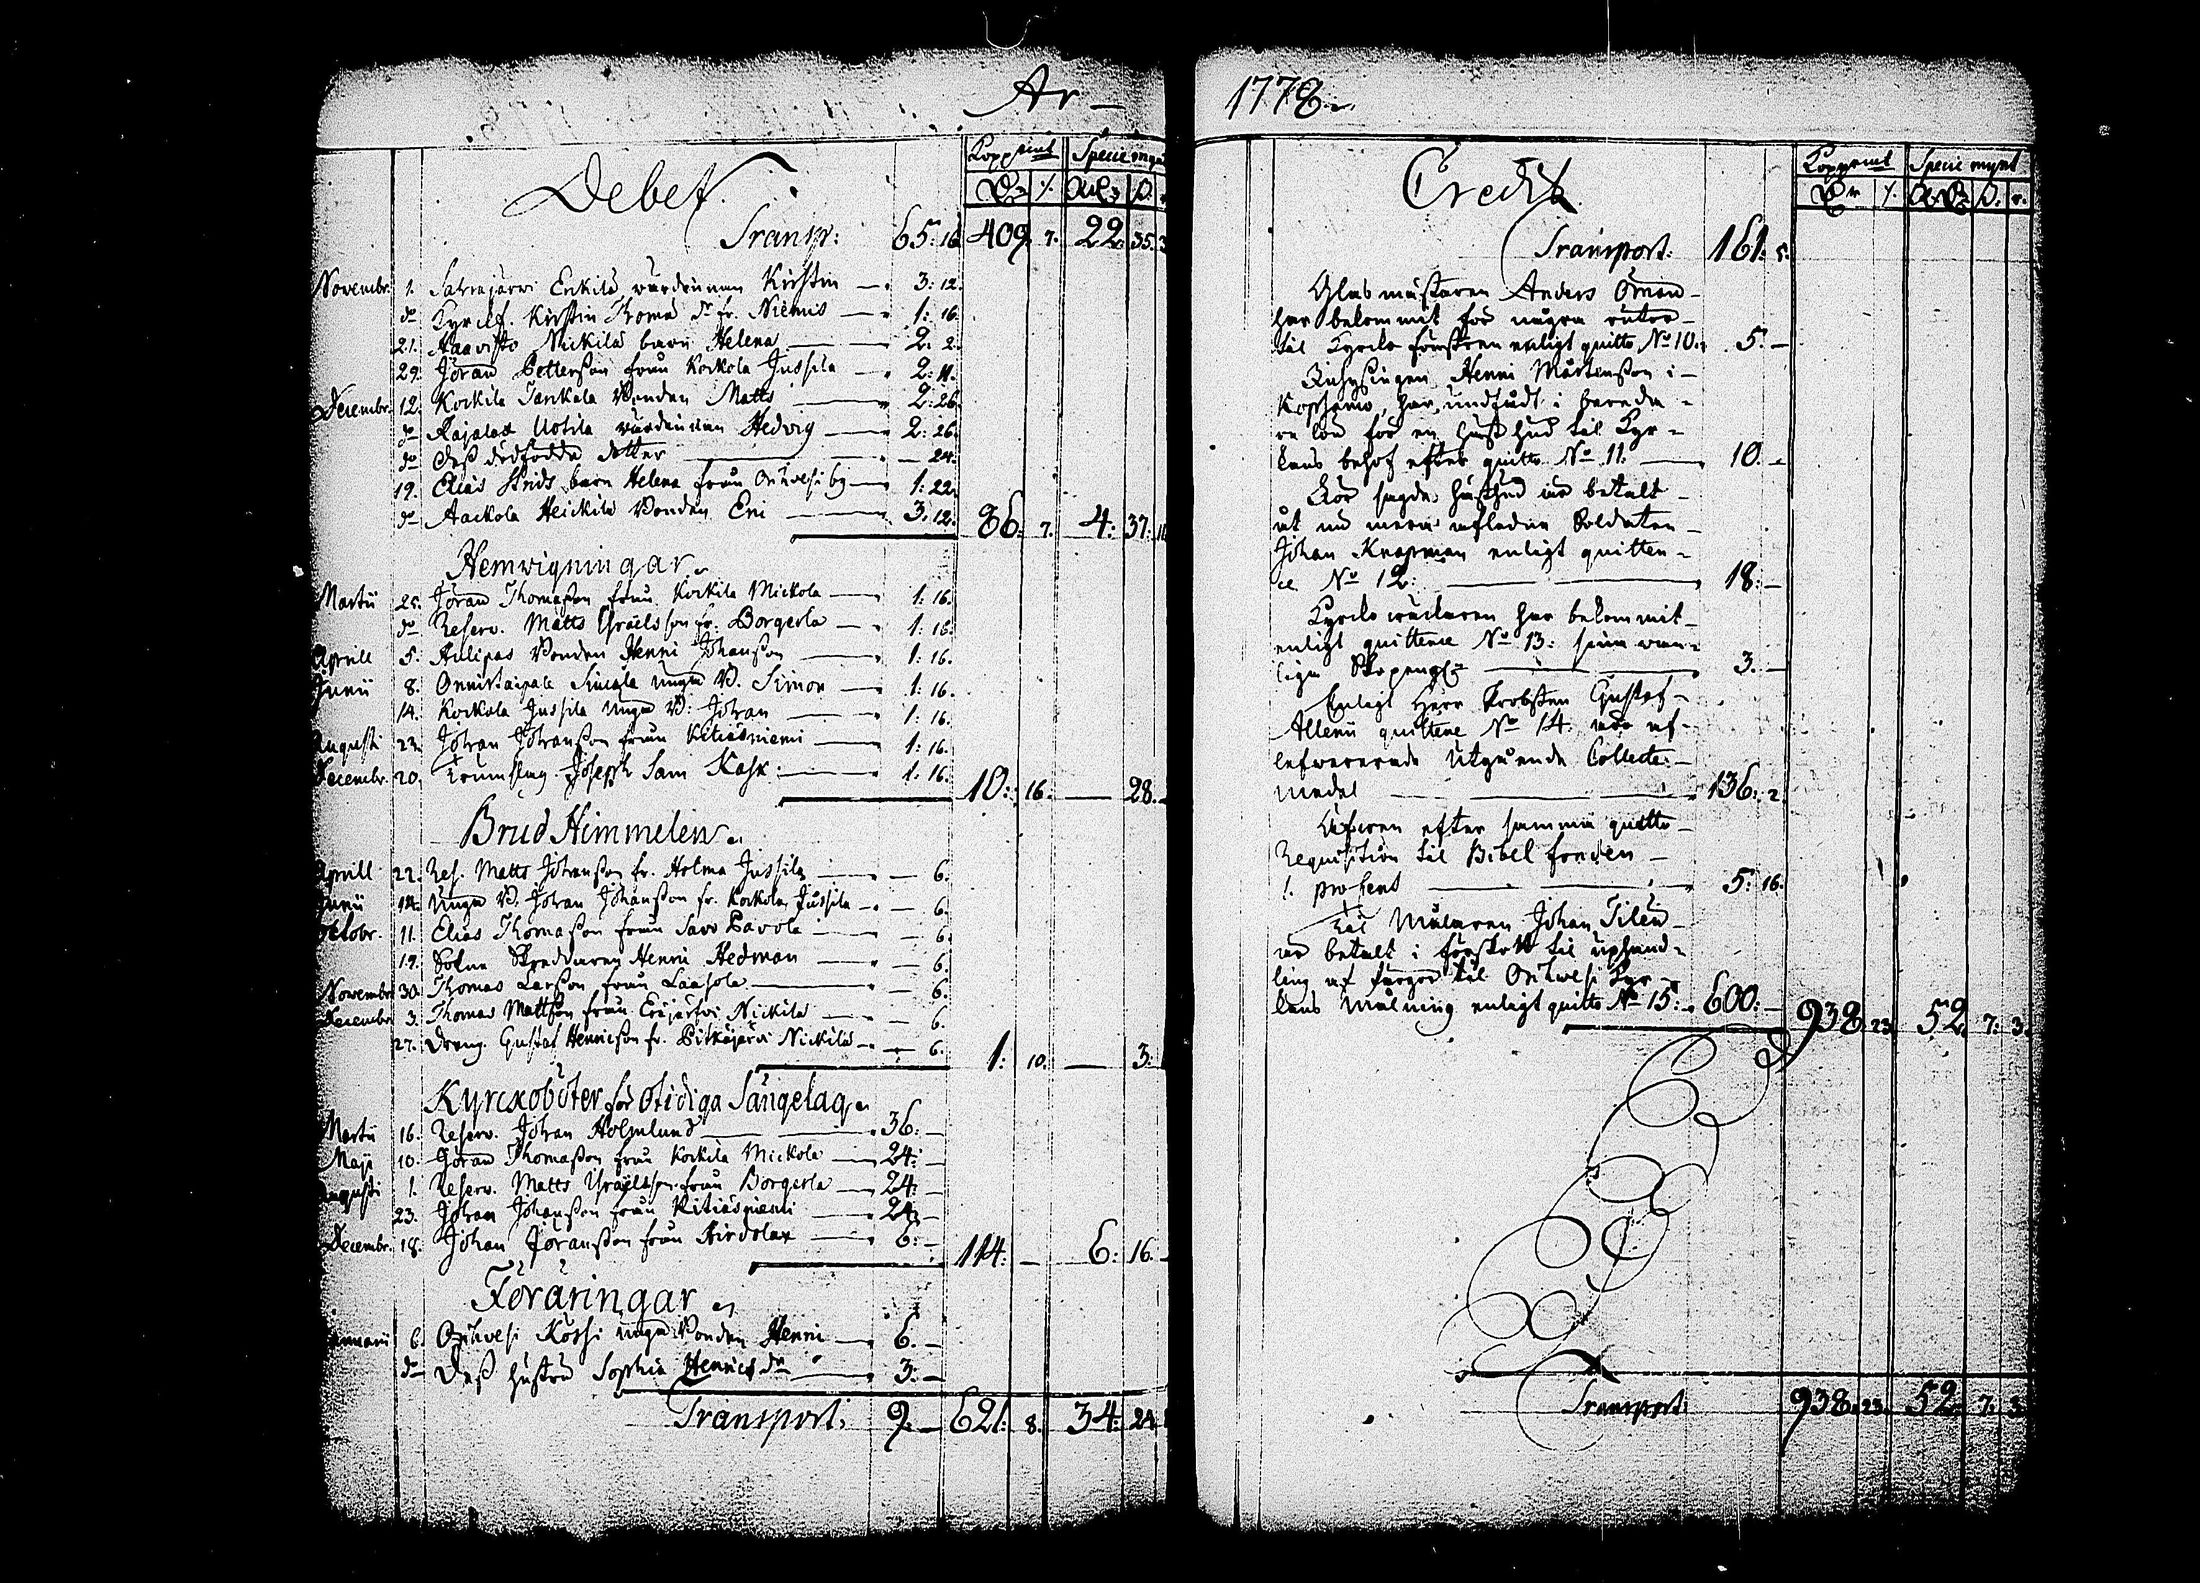 År — 1778
Debet.
Koppmt Specie mynt
Transp: 65: 16 409. 7. 22. 35. 3
Novembr. 1. Salvajärvi Erkilä värdinnan Kirstin — 3: 12.
do Kirstin Thomae dr fr. Niemis — 1: 16.
21. Haavisto Nickilä barn Helena — 2. 2.
29. Jöran Petterßon från Kockola Jussila — 2: 11.
Decembr. 12. Kockila Bonden Matts — 2: 26.
do Rajalax Uotila värdinnan Hedvig — 2: 26.
do deß dödfödda dotter — 24.
19. Elias Strids barn Helena från Orihvesi by — 1: 22.
do Aackola Heickilä Bonden Eri — 3. 12. 86: 7. 4: 37:
Hemvigningar
Martii 25. Jöran Thomaßon från Kockila Mickola — 1: 16.
do Reserv. Matts Israelsson fr. Borgerla — 1: 16.
Aprill 5. Bonden Henri Johanßon — 1: 16.
Junii 8. unga B. Simon — 1: 16.
14. Kockola Jussila unga B: Johan — 1: 16.
Augusti 23. Johan Johanßon från Kitiäsniemi — 1: 16.
Decembr. 20. Trumslag. Joseph Sam Kask: — 1: 16. 10: 16. — 28.
Brud Himmelen
Aprill 22. Res. Matts Johanßon fr. Holma Jussila — 6.
Junii 14. Unga B. Johan Johanßon fr. Kockola Jussila — 6.
Octobr. 11. Elias Thomaßon från Savo Pavola — 6.
19. Sokne Skreddaren Henric Hedman — 6.
Novembr 30. Thomas Larßon från Laasola — 6.
Decembr 3. Thomas Mattßon från Eräjärfvi Nickilä — 6.
27. Dreng. Gustaf Henricßon fr. Pitkäjärvi Nickilä — 6. 1: 10. — 3:
Kyrckoböter för otidiga Sängelag
Martii 16. Reserv. Johan Holmlund — 36. —
Maji 10. Jöran Thomaßon från Kockila Mickola — 24: —
Augusti 1. Reserv. Matts Israelsson från Borgerla — 24: —
23. Johan Johanßon från Kitiäsniemi — 24: —
Decembr. 18. Johan Jöranßon från Hirdolax — 6: — 114: — 6: 16.
Föräringar
Januarii 6. Orihvesi Kossi unga Bonden Henric — 6. —
do Deß hustru Sophia Henricsdr — 3: —
Transport: 9. — 621: 8. 34: 24
Credit
Koppmt Specie mynt
Transport: 161. 5.
Glas mästaren Anders Öman
har bekommit för några rutor
til Kyrko fönstren enligt quitto No 10. 5. —
Henric Mårtenßon i
har undfådt i bereda-
re lön för en hästhud til Kyr-
kans behof efter quitto No 11. — 10. —
För sagde hästhud är betalt
åt nu mera afledne Soldaten
Johan Knapman enligt quitten-
ce No 12: — 18: —
Kyrko väcktaren har bekommit
enligt quittence No 13: sina van-
liga — 3. —
Enligt Herr Probsten Gustaf
Allenii quittence No 14. är af-
lefvererade utgående Collecte-
medel — 136: 2.
Äfven efter samma quitto
Requisition til Bibel fonden
1. procent — 5: 16.
Til Målaren Johan Tilén
är betalt i förskott til uphand-
ling af färgor til Orihvesi Kyr-
kans målning enligt quitto No 15: 600: — 938. 23. 52. 7: 3.
Transport: 938. 23. 52. 7: 3.